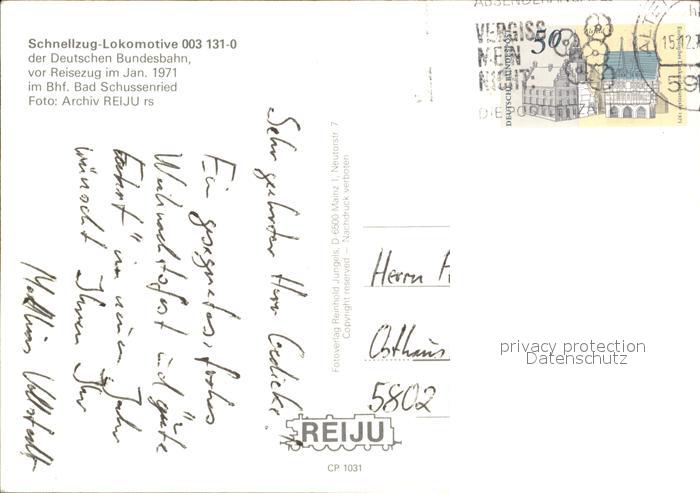 Schnellzug-Lokomotive 003 131-0
der Deutschen Bundesbahn,
vor Reisezug im Jan. 1971
im Bhf. Bad Schussenried
Foto: Archiv REIJU rs
Sehr geehrter Herr
Ein gesegnetes, frohes
Weihnachtsfest und "gute
Fahrt" im neuen Jahr
wünscht Ihnen Ihr
Matthias
Fotoverlag Reinhold Jungels, D 6500 Mainz 1, Neutorstr. 7
Copyright reserved — Nachdruck verboten
REIJU
CP 1031
VERGISS
MEIN
NICHT
50
DEUTSCHE BUNDESPOST
15.12.
Herrn
Osthaus
5802
privacy protection
Datenschutz